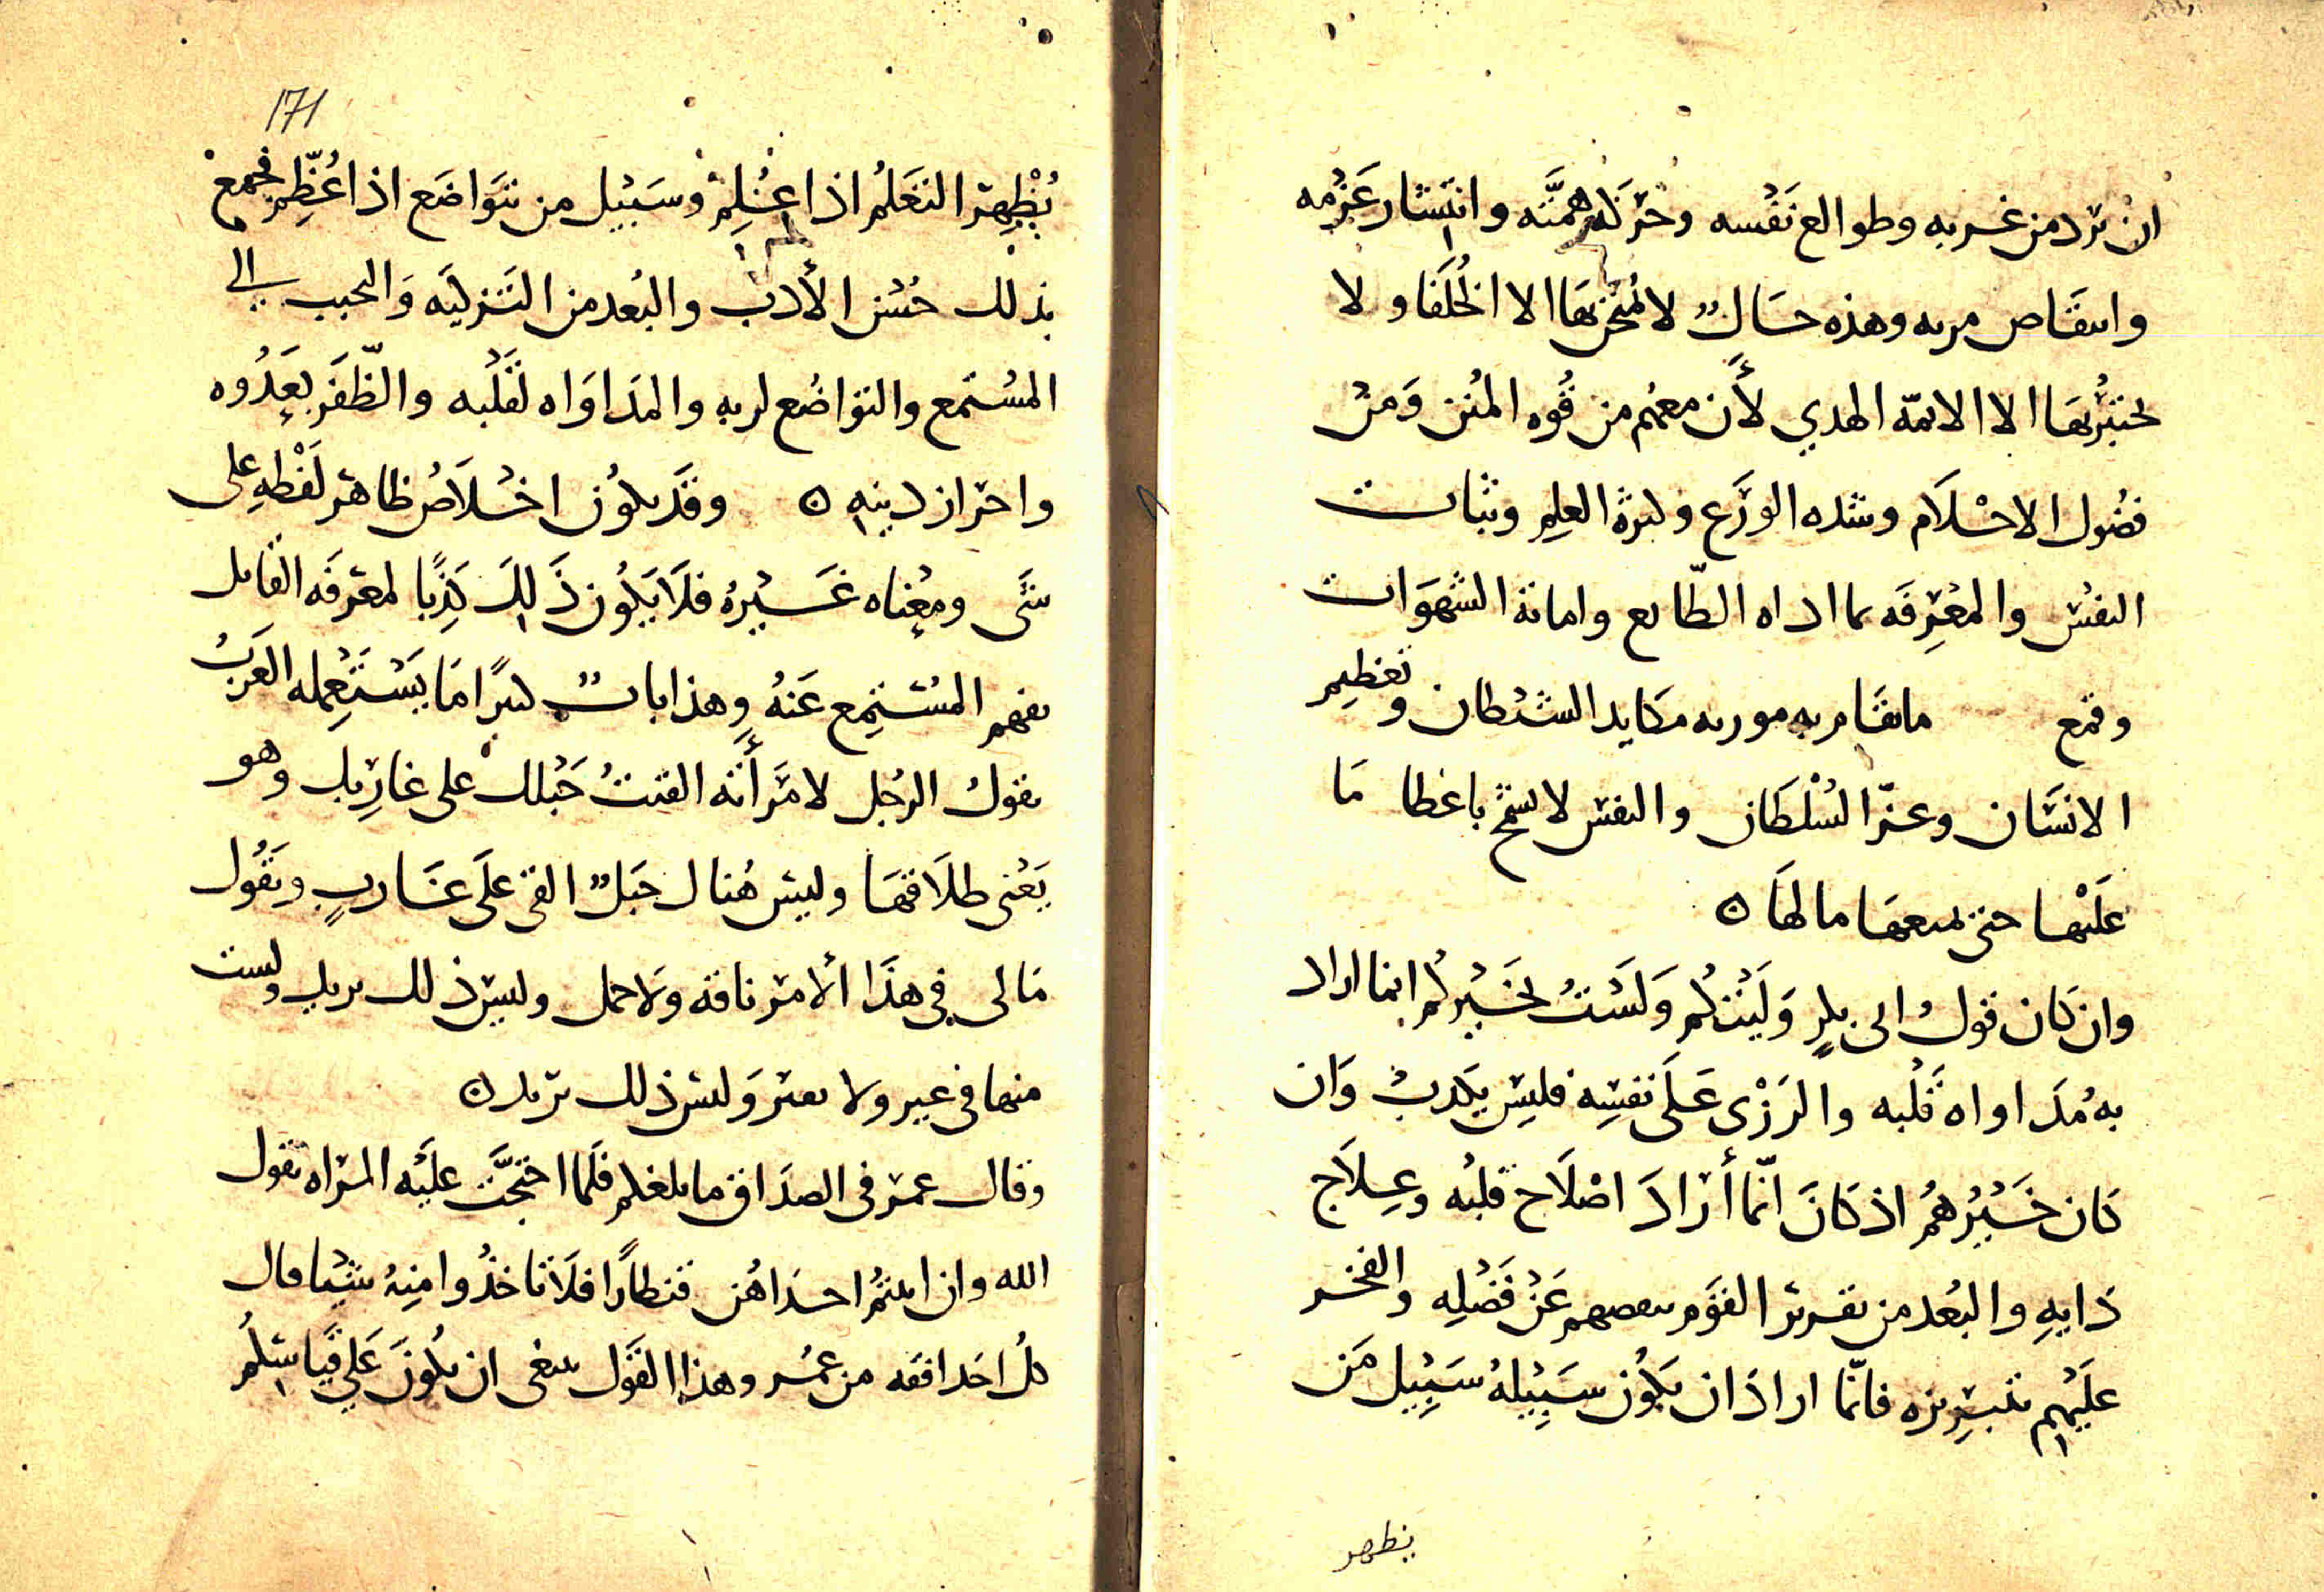 ان ترد من غربه وطوالع نفسه وحركة همته وانتشار عزمه
وانتقاض مريه وهذه حال لا يمتحن بها الا الخلفا ولا
يختبر بها الا الائمة الهدي لأن معهم من قوه المنن ومن
فضول الاحلام وشده الورع وكثرة العلم وثبات
النفس والمعرفه بما اداه الطبائع واماتة الشهوات
وقمع ما يقام به موريه مكايد الشيطان وتعظيم
الانسان وعز السلطان والنفس لا تسمح باعطا ما
عليها حتى تمنعها ما لها ه
وان كان قول ابي بكر وليتكم ولست بخيركم انما اراد
به مداواه قلبه والزري على نفسه فليس بكذب وان
كان خيرهم اذ كان انما أراد اصلاح قلبه وعلاج
دايه والبعد من تقرير القوم بنقصهم عن فضله والفخر
عليهم بتبريزه فانما اراد ان يكون سبيله سبيل من
يظهر
171
يظهر التعلم اذا عُلم وسبيل من تتواضع اذا عُظم فجمع
بذلك حسن الأدب والبعد من التزكيه والتحبب الي
المستمع والتواضع لربه والمداواه لقلبه والظفر بعدوه
واحراز دينه ه وقد يكون اخلاص ظاهر لفظه على
شي ومعناه غيره فلا يكون ذلك كذبا لمعرفه القايل
بفهم المستمع عنه وهذا باب كثيرًا ما يستعمله العرب
يقول الرجل لامرأته القيت حبلك على غاربك وهو
يعني طلاقها وليس هناك حبل القي على غارب ويقول
مالي في هذا الأمر ناقه ولا جمل وليس ذلك يريد ولست
منها في عير ولا نفير وليس ذلك يريد ه
وقال عمر في الصداق ما بلغكم فلما احتجت عليه المراه بقول
الله وان اتيتم احداهن قنطارًا فلا تاخذوا منه شيئا قال
كل احد افقه من عمر وهذا القول ينبغي ان يكون علي قياسكم